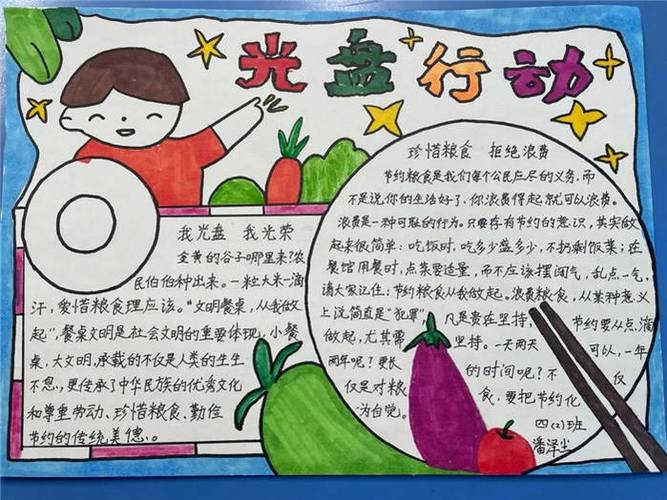 光盘行动
我光盘 我光荣
金黄的谷子哪里来?农
民伯伯种出来。一粒大米一滴
汗,爱惜粮食理应该。“文明餐桌,从我做
起”,餐桌文明是社会文明的重要体现,小餐
桌,大文明,承载的不仅是人类的生生
不息,更传承了中华民族的优秀文化
和尊重劳动、珍惜粮食、勤俭
节约的传统美德。
珍惜粮食 拒绝浪费
节约粮食是我们每个公民应尽的义务,而
不是说你的生活好了,你浪费得起就可以浪费。
浪费是一种可耻的行为。只要存有节约的意识,其实做
起来很简单:吃饭时,吃多少盛多少,不扔剩饭菜;在
餐馆用餐时,点菜要适量,而不应该摆阔气,乱点一气,
请大家记住:节约粮食从我做起。浪费粮食,从某种意义
上说简直是“犯罪” 凡是贵在坚持, 节约要从点滴
做起,尤其需 坚持。一天两天 可以,一年
两年呢?更长 的时间呢?不 仅
仅是对粮 食,要把节约化
为自觉。
四(2)班
潘泽尘